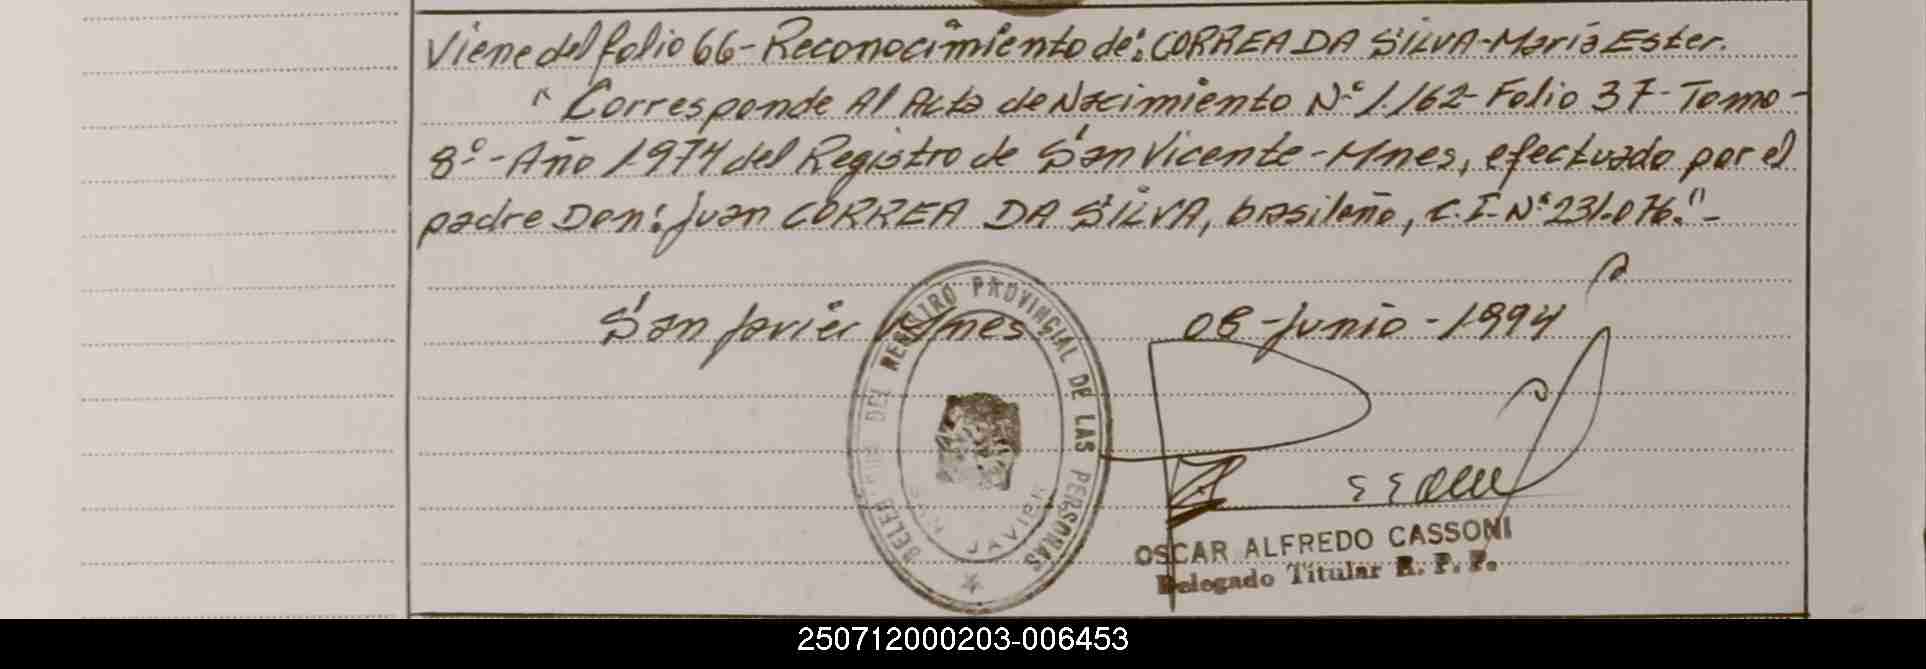 Viene del folio 66-Reconocimiento de: CORREA DA SILVA-María Ester.
" Corresponde Al Acta de Nacimiento N.º 1.162- Folio 37- Tomo -
8º.- Año 1.974 del Registro de San Vicente - Mnes, efectuado por el
padre Don: Juan CORREA DA SILVA, brasileño, C.I. Nº 231.076."-
San Javier Mnes 08-junio-1.994
DELEGACION DEL REGISTRO PROVINCIAL DE LAS PERSONAS
SAN JAVIER
OSCAR ALFREDO CASSONI
Delegado Titular R. P. P.
250712000203-006453